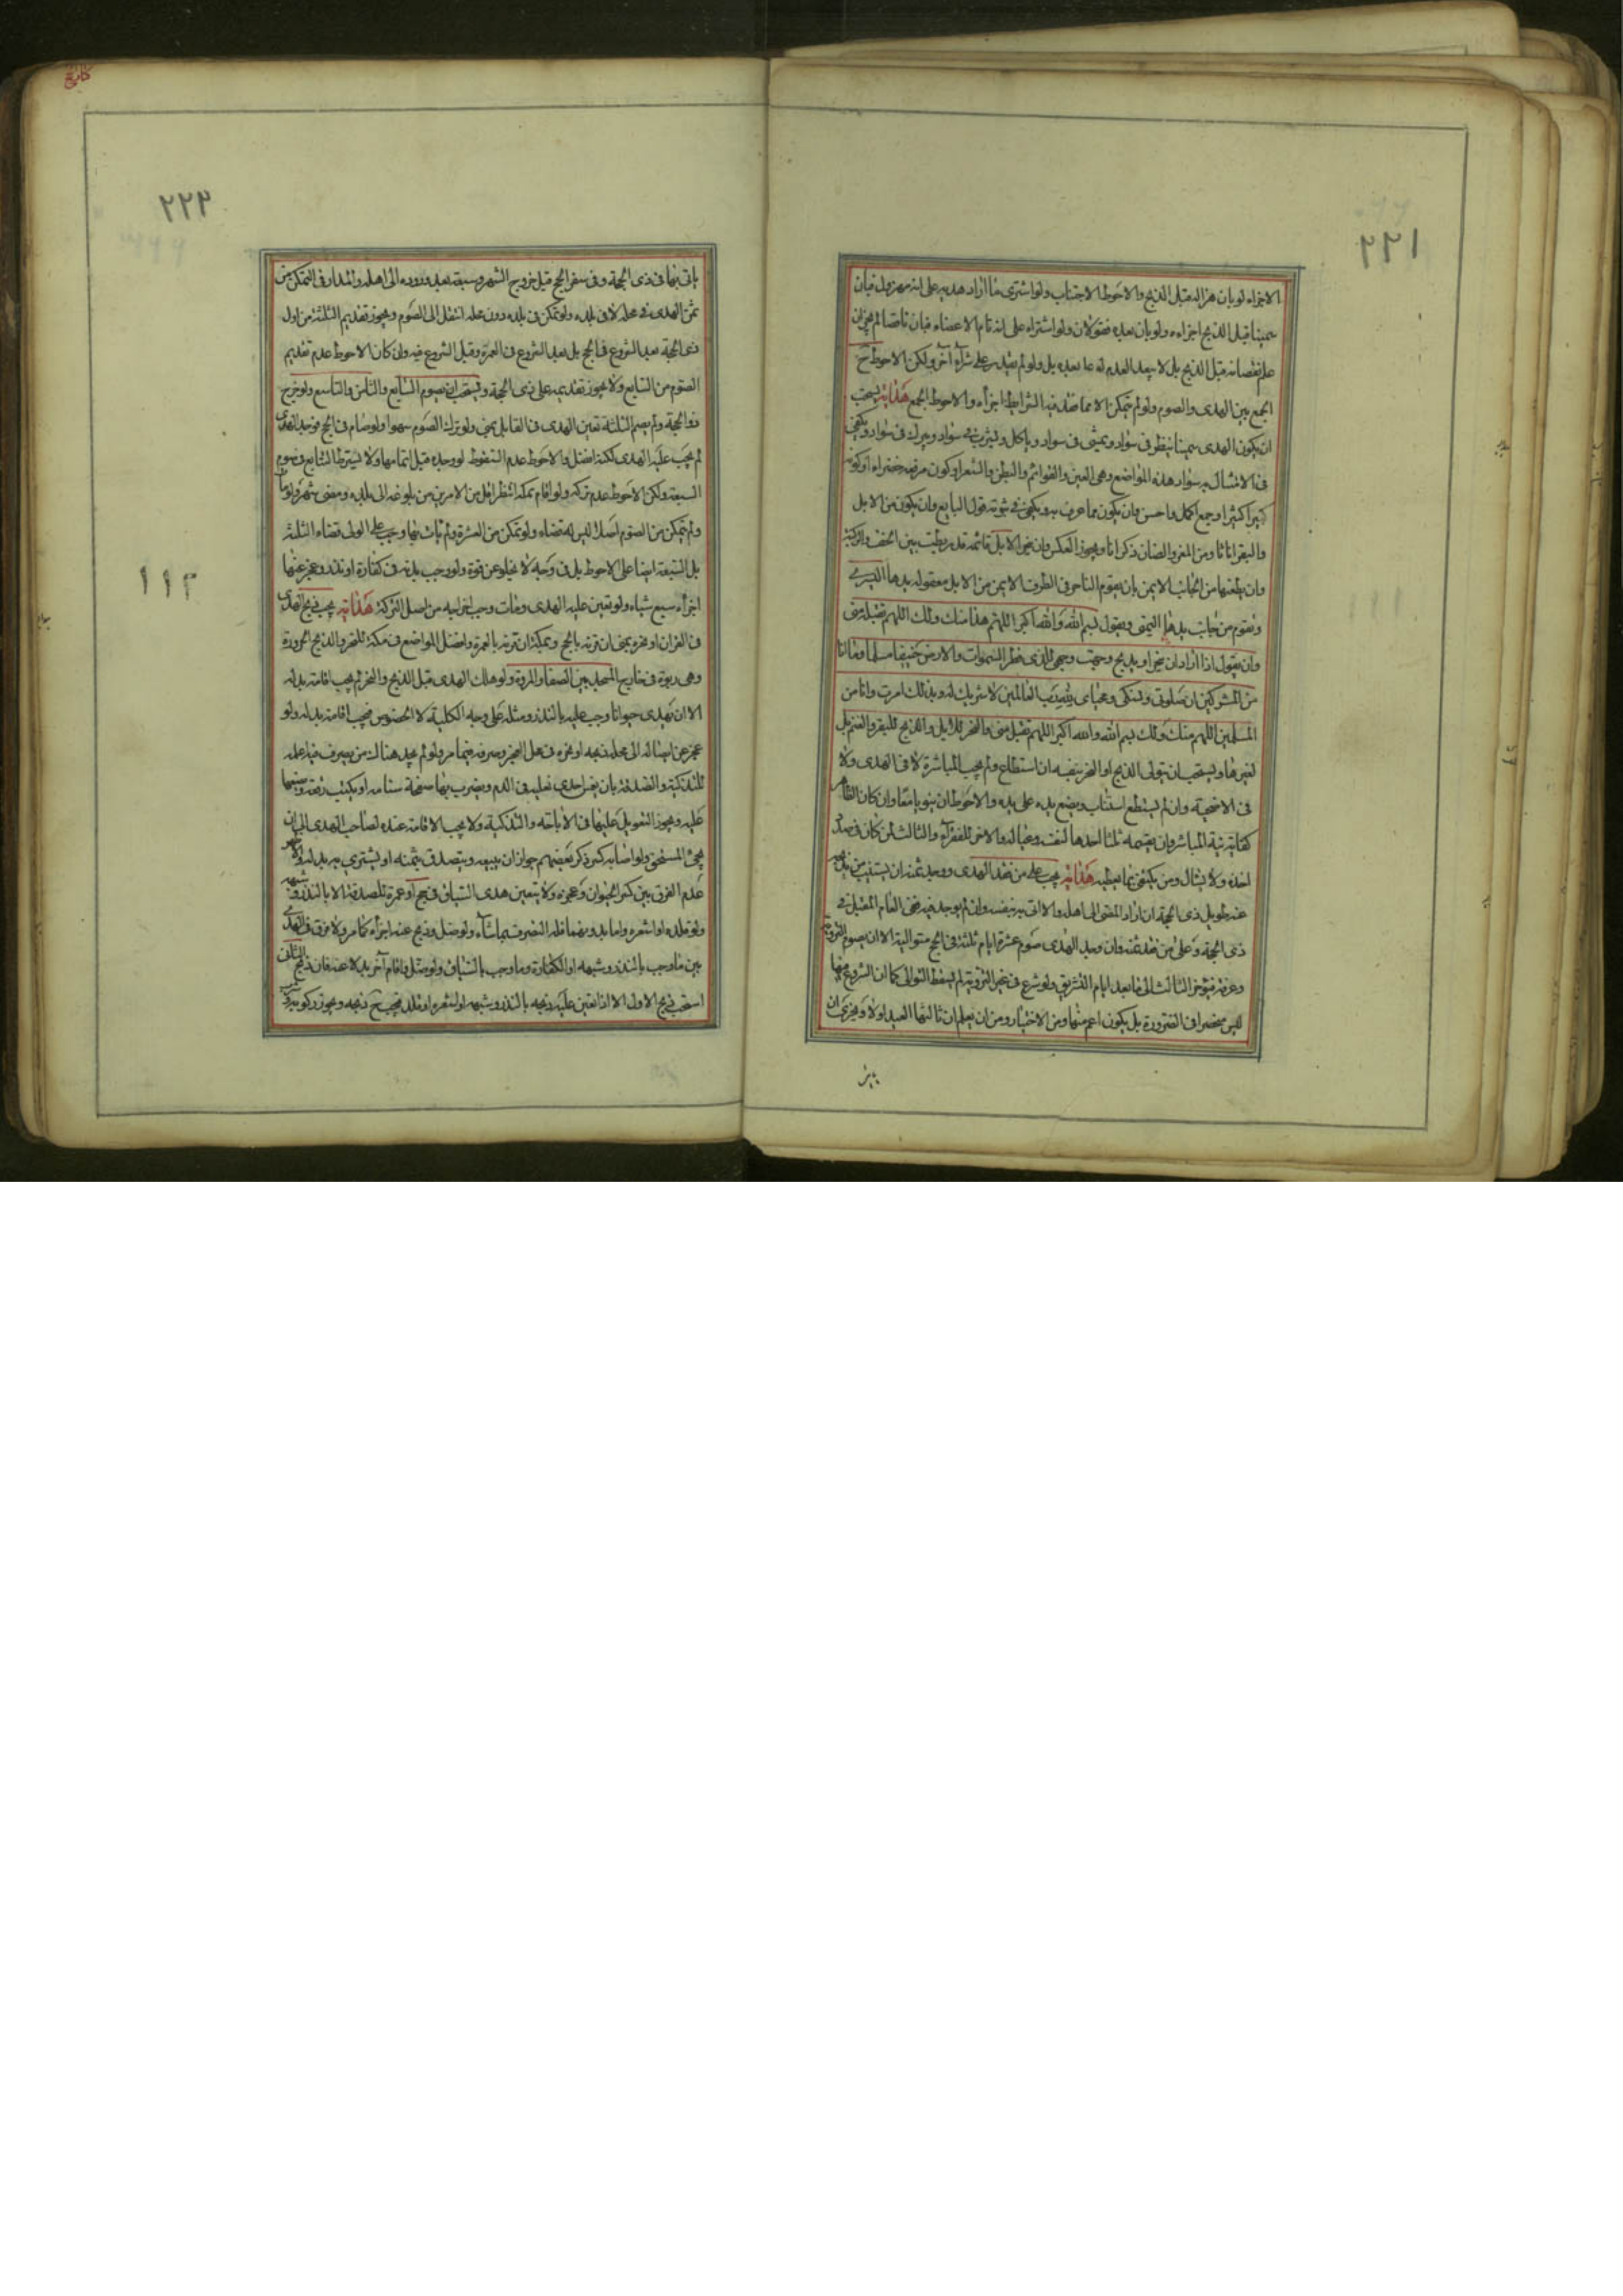 ٢٢١
الاجزاء لو بان هزاله قبل الذبح والاحوط الاجتناب ولو اشترى ما اراد هديه على انه مهزول فبان
سمينا قبل الذبح اجزاءه ولو بان بعده فقولان ولو اشتراه على انه تام الاعضاء فبان ناقصا لم يجز ان
علم نقصانه قبل الذبح بل لا يبعد العدم لو بعده بل ولو لم يقدر على شرآء آخر ولكن الاحوط ح
الجمع بين الهدى والصوم ولو لم يتمكن الا مما فقد فيه الشرايط اجزأه والاحوط الجمع هداية يستحب
ان يكون الهدى سمينا ينظر فى سواد ويمشى فى سواد وياكل ويشرب فى سواد ويبرك فى سواد ويكفى
فى الامتثال سواد هذه المواضع وهى العين والقوائم والبطن والشعر او كون او كونه
كبيرا وجمع اكمل واحسن وان يكون مما عرف به ويكفى فى ثبوته قول البايع وان يكون من الابل
والبقر اناثا ومن المعز والضان ذكرانا ويجوز العكس وان ينحر الابل قائمة قد ربطت بين الخف والركبة
وان يطعنها من الجانب الايمن بان يقوم الناحر فى الطرف الايمن من الابل معقولة يدها اليسرى
ويقوم من جانب يدها اليمنى ويقول بسم الله والله اكبر اللهم هذا منك ولك اللهم تقبله منى
وان يقول اذا اراد ان ينحر او يذبح وجهت وجهى للذى فطر السموات والارض حنيفا مسلما وما انا
من المشركين ان صلوتى ونسكى ومحياى لله رب العالمين لا شريك له وبذلك امرت وانا من
المسلمين اللهم منك ولك بسم الله والله اكبر اللهم تقبل منى والنحر للابل والذبح للبقر والغنم بل
لغيرها ويستحب ان يتولى الذبح او النحر بنفسه ان استطاع ولم يجب المباشرة لا فى الهدى ولا
فى الاضحية وان لم يستطع استناب ويضع يده على يده والاحوط ان ينويا معا وان كان الظاهر
كفاية نية المباشر وان يقسمه ثلثا احدها لنفسه وعياله والاخر للفقرآء والثالث لمن كان فى صدد
اخذه ولا يسأل ومن يكتفى بما يعطيه هداية يجب على من فقد الهدى ووجد ثمنه ان يستنيب من يذبحه
عنه طويل ذى الحجة ان اراد المضى الى اهله والا اتى به بنفسه وان لم يوجد فيه ففى العام المقبل فى
ذى الحجة وعلى من فقد ثمنه وان وجد الهدى صوم عشرة ايام ثلثة فى الحج متوالية الا ان يصوم التروية
وعرفة فيؤخر الثالث الى ما بعد ايام التشريق ولو شرع فى غير التروية لم يسقط التوالى كما ان الشروع فيها
ليس منحصرا فى الضرورة بل يكون اعم منها ومن الاختيار ومن ان يعلم ان ثالثها العيد اولا ويجزى ان
٢٢٣
ياتى بها فى ذى الحجة وفى سفر الحج قبل خروج الشهر وسبعة بعد وروده الى اهله والمدار فى التمكن من
ثمن الهدى فى محله لا فى بلده ولو تمكن فى بلده دون محله انتقل الى الصوم ويجوز تقديم الثلثة من اول
ذى الحجة بعد الشروع فى الحج بل بعد الشروع فى العمرة وقبل الشروع فيه وان كان الاحوط عدم تقديم
الصوم من السابع ولا يجوز تقديمه على ذى الحجة ويستحب ان يصوم السابع والثامن والتاسع ولو خرج
ذو الحجة ولم يصم الثلثة تعين الهدى فى القابل بمنى ولو ترك الصوم سهوا ولو صام فى الحج فوجد الهدى
لم يجب عليه الهدى لكنه افضل والاحوط عدم السقوط لو وجده قبل اتمامها ولا يشترط التتابع فى صوم
السبعة ولكن الاحوط عدم تركه ولو اقام بمكة انتظر اقل من الامرين من بلوغه الى بلده ومضى شهر ولو مات
ولم يتمكن من الصوم اصلا ليس له قضاء ولو تمكن من العشرة ولم يات بها وجب على الولى قضاء الثلثة
بل السبعة ايضا على الاحوط بل فى وجه لا يخلو عن قوة ولو وجب بدنة فى كفارة او نذر وعجز عنها
اجزأه سبع شياه ولو تعين عليه الهدى ومات وجب اخراجه من اصل التركة هداية يجب ذبح الهدى
فى القران او نحره بمنى ان قرنه بالحج وبمكة ان قرنه بالعمرة وافضل المواضع فى مكة للنحر والذبح الحزورة
وهى ربوة فى خارج المسجد بين الصفا والمروة ولو هلك الهدى قبل الذبح والنحر لم يجب اقامة بدله
الا ان يهدى حيوانا وجب عليه بالنذر ومثله على وجه الكلية لا الخصوص فيجب اقامة بدله ولو
عجز عن ايصاله الى محله ذبحه او نحره فى محل العجز وصرفه فيما مر ولو لم يجد هناك من يصرف فيه علمه
للتذكية والتصدقة بان يغمس احدى نعليه فى الدم ويضرب بها صفحة سنامه او يكتب رقعة ويضعها
عليه ويجوز التعويل عليها فى الاباحة والتذكية ولا يجب الاقامة عنده لصاحب الهدى الى ان
يجئ المستحق ولو اصابه كسر ذكر بعضهم جواز ان يبيعه ويتصدق بثمنه او يشترى به بدله والاظهر
عدم الفرق بين كسر الحيوان وعجزه ولا يتعين هدى السياق فى حج او عمرة للصدقة الا بالنذر وشبهه
ولو قلده او اشعره واما بدونهما فله التصرف بما شآء ولو ضل وذبح عنه اجزأه كما مر ولا فرق فى الهدى
بين ما وجب بالنذر وشبهه او الكفارة وما وجب بالسياق ولو ضل واقام آخر بدلا عنه فان ذبح الثانى
استحب ذبح الاول الا اذا تعين عليه ذبحه بالنذر وشبهه او اشعره او قلده فيجب ح ذبحه ويجوز ركوبه
١١٢